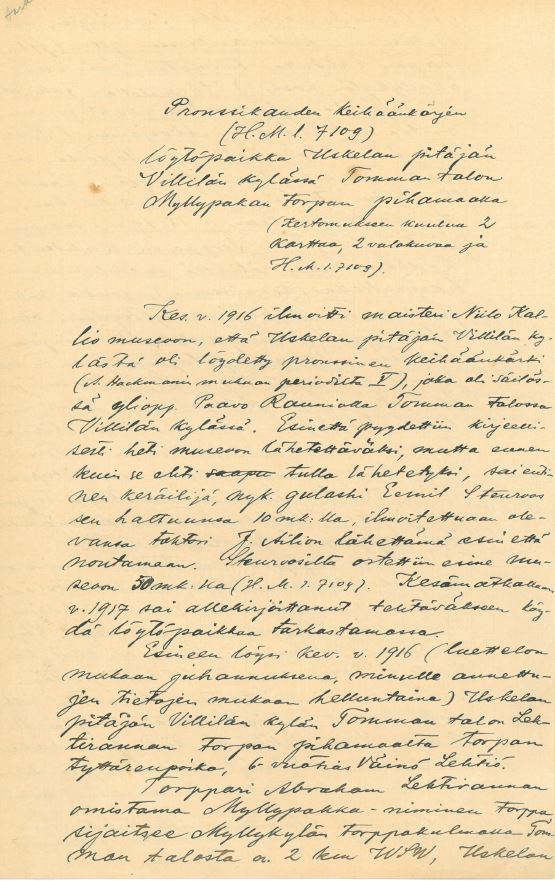 Pronssikauden keihäänkärjen
(H.M. l. 7109)
löytöpaikka Uskelan pitäjän
Villilän kylässä Tomman talon
Myllypakan torpan pihamaalla
(Kertomukseen kuuluu 2
karttaa, 2 valokuvaa ja
H.M. l. 7109).
Kes. v. 1916 ilmoitti maisteri Niilo Kal-
lio museoon, että Uskelan pitäjän Villilän ky-
lästä oli löydetty pronssinen keihäänkärki
(A. Hackmanin mukaan periodilta V), joka oli säilös-
sä yliopp. Paavo Rauniolla Tomman talossa
Villilän kylässä. Esinettä pyydettiin kirjeelli-
sesti heti museoon lähetettäväksi, mutta ennen
kuin se ehti saapu tulla lähetetyksi, sai enti-
nen keräilijä, nyk. gulashi Eemil Stenroos
sen haltuunsa 10 mk:lla, ilmoitettuaan ole-
vansa tohtori J. Ailion lähettämä esinettä
noutamaan. Stenroosilta ostettiin esine mu-
seoon 50 mk:lla (H.M. l. 7109). Kesämatkallaan
v. 1917 sai allekirjoittanut tehtäväkseen käy-
dä löytöpaikkaa tarkastamassa.
Esineen löysi kev. v. 1916 (luettelon
mukaan juhannuksena, minulle annettu-
jen tietojen mukaan helluntaina) Uskelan
pitäjän Villilän kylän Tomman talon Leh-
tirannan torpan pihamaalta torpan
tyttärenpoika, 6-vuotias Väinö Lehtiö.
Torppari Abraham Lehtirannan
omistama Myllypakka-niminen torppa
sijaitsee Myllykylän torppakulmalla Tom-
man talosta n. 2 km WSW, Uskelan